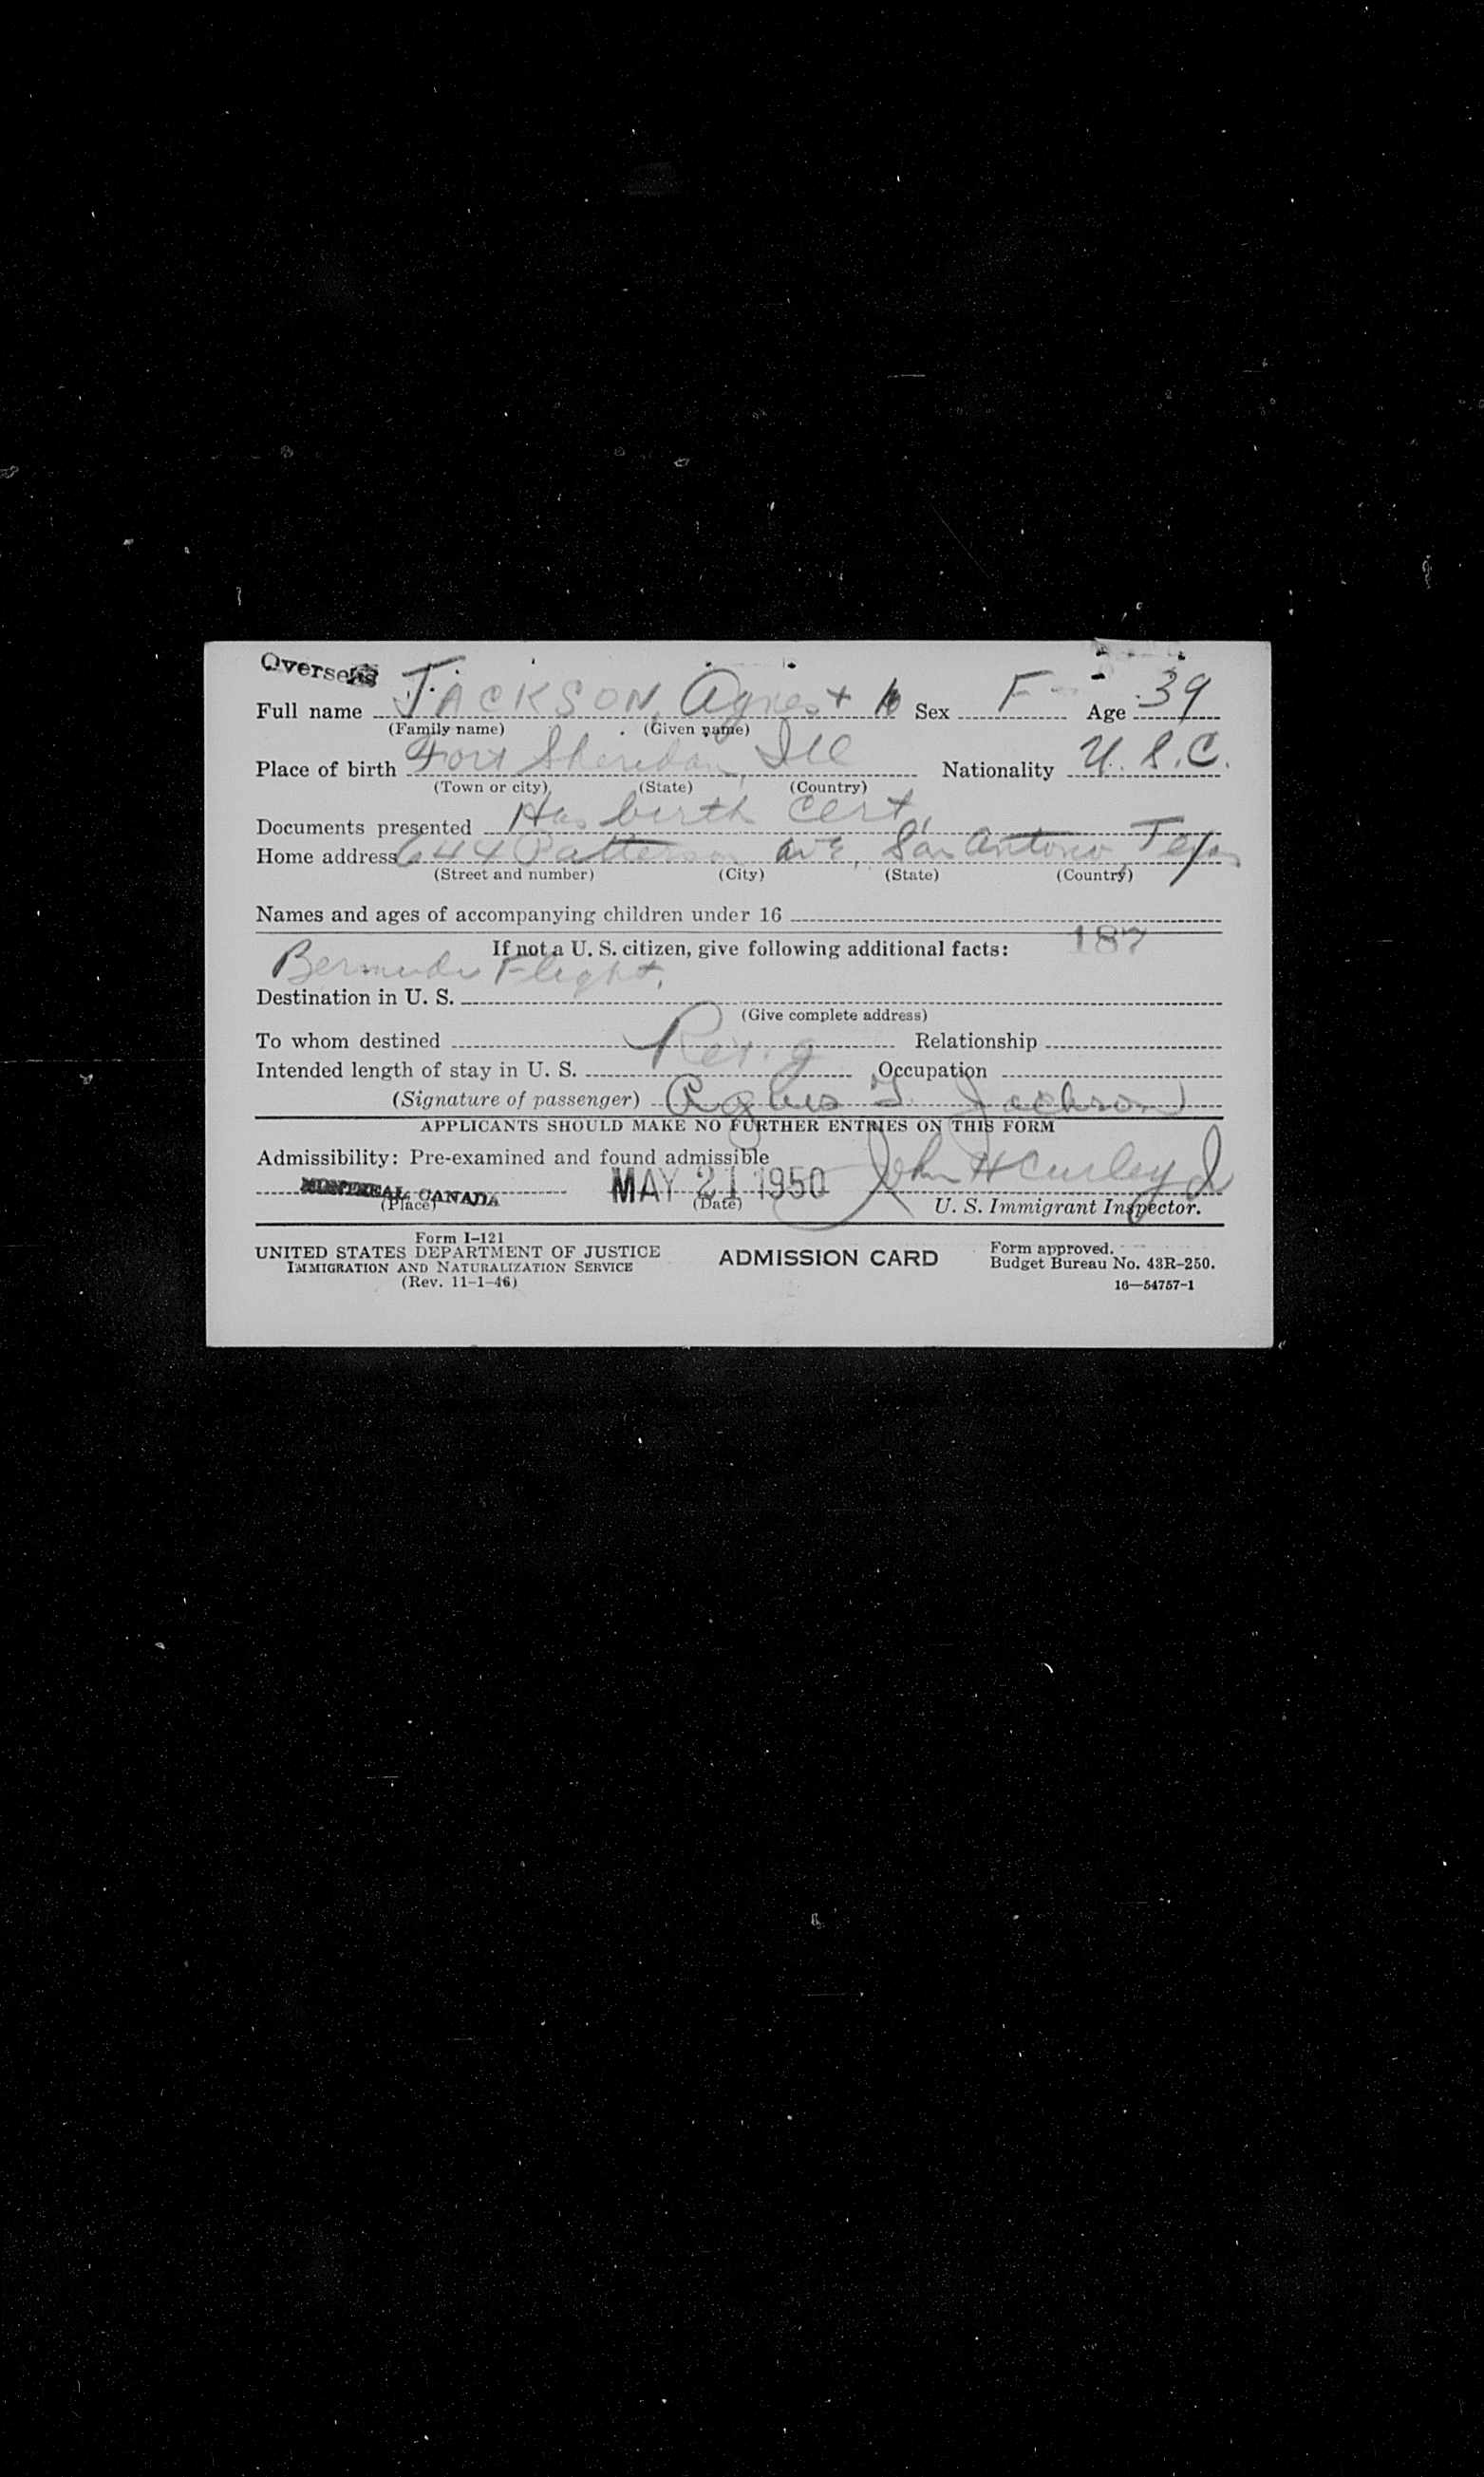 Overseas
Full name JACKSON, Agnes Sex F Age 39
(Family name) (Given name)
Place of birth Fort Sheridan, Ill Nationality U.S.C.
(Town or city) (State) (Country)
Documents presented Has birth Cert,
Home address 644 Patterson ave, San Antonio Texas
(Street and number) (City) (State) (Country)
Names and ages of accompanying children under 16
If not a U. S. citizen, give following additional facts: 187
Bermuda Flight,
Destination in U. S.
(Give complete address)
To whom destined Relationship
Intended length of stay in U. S. Occupation
(Signature of passenger) Agnes Jackson
APPLICANTS SHOULD MAKE NO FURTHER ENTRIES ON THIS FORM
Admissibility: Pre-examined and found admissible
MONTREAL, CANADA MAY 21 1950 John H Curley
(Place) (Date) U. S. Immigrant Inspector.
Form I-121
UNITED STATES DEPARTMENT OF JUSTICE
IMMIGRATION AND NATURALIZATION SERVICE
(Rev. 11-1-46)
ADMISSION CARD
Form approved.
Budget Bureau No. 43R-250.
16—54757-1